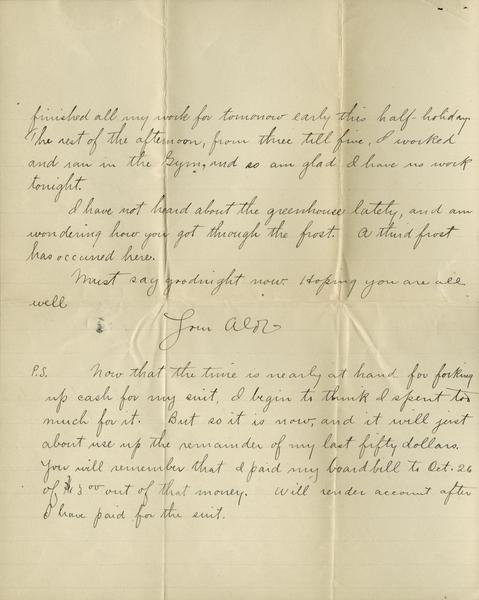 finished all my work for tomorrow early this half-holiday.
The rest of the afternoon, from three till five, I worked
and ran in the Gym, and so am glad I have no work
tonight.
I have not heard about the greenhouse lately, and am
wondering how you got through the frost. A third frost
has occured here.
Must say goodnight now. Hoping you are all
well
Your Aldo
P.S. Now that the time is nearly at hand for forking
up cash for my suit, I begin to think I spent too
much for it. But so it is now, and it will just
about use up the remainder of my last fifty dollars.
You will remember that I paid my board bill to Oct. 26
of out of that money. Will render account after
I have paid for the suit.